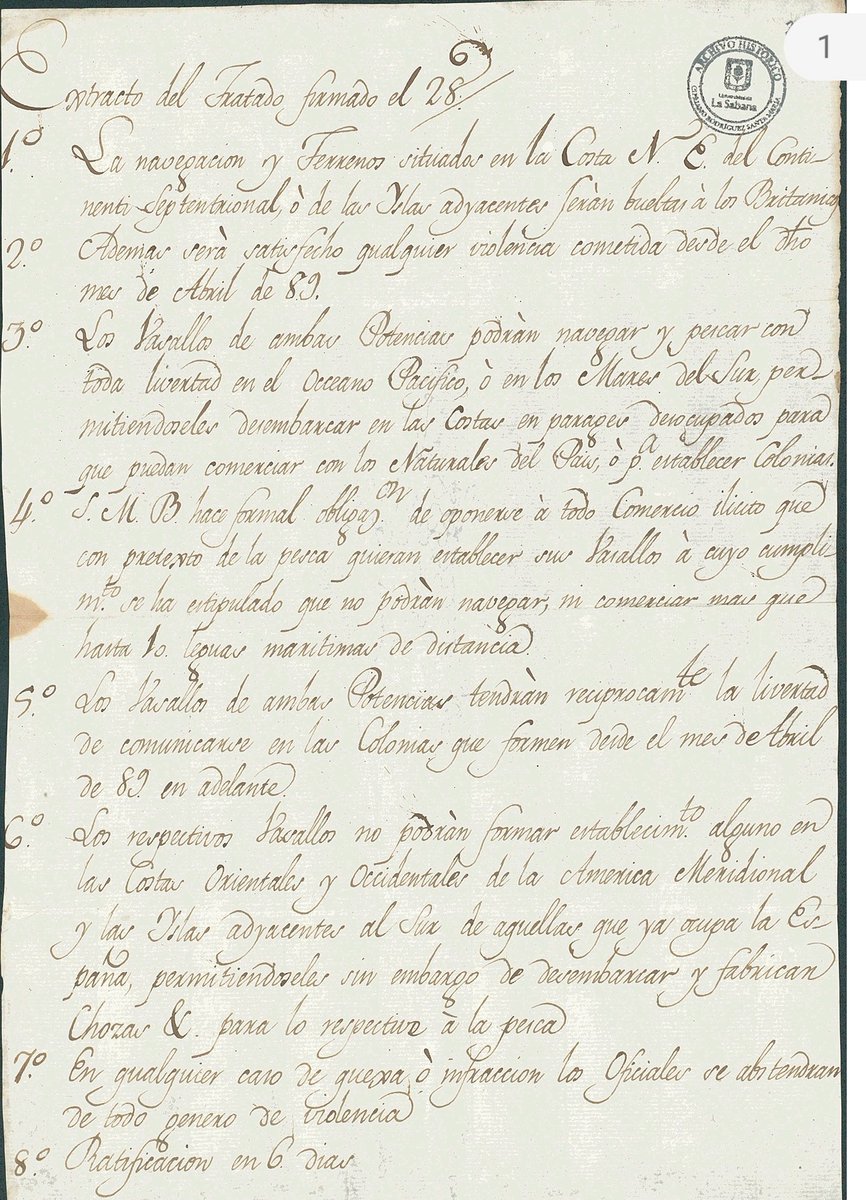 1
ARCHIVO HISTORICO
Universidad de
La Sabana
Extracto del Tratado firmado el 28.
1.º La navegacion y Terrenos situados en la Costa N. E. del Conti-
nenti Septentrional, ò de las Yslas adyacentes seràn bueltas à los Britanicos
2.º Ademas serà satisfecho qualquier violencia cometida desde el dho
mes de Abril de 89.
3.º Los Vasallos de ambas Potencias podràn navegar y pescar con
toda livertad en el Occeano Pacifico, ò en los Mares del Sur, per-
mitiendoseles desembarcar en las Costas en parages desocupados para
que puedan comerciar con los Naturales del Pais, ò p.a establecer Colonias.
4.º S. M. B. hace formal obligaz.on de oponerse à todo Comercio ilicito que
con pretexto de la pesca quieran establecer sus Vasallos à cuyo cumpli-
m.to se ha estipulado que no podràn navegar, ni comerciar mas que
hasta 10. leguas maritimas de distancia.
5.º Los Vasallos de ambas Potencias tendràn reciprocam.te la livertad
de comunicarse en las Colonias que formen desde el mes de Abril
de 89. en adelante.
6.º Los respectivos Vasallos no podràn formar establecim.to alguno en
las Costas Orientales y Occidentales de la America Meridional
y las Yslas adyacentes al Sur de aquellas que ya ocupa la Es-
paña, permitiendoseles sin embargo de desembarcar y fabrican
Chozas &. para lo respectivo à la pesca
7.º En qualquier caso de quexa, ò infraccion los Oficiales se abstendran
de todo genero de violencia
8.º Ratificacion en 6. dias